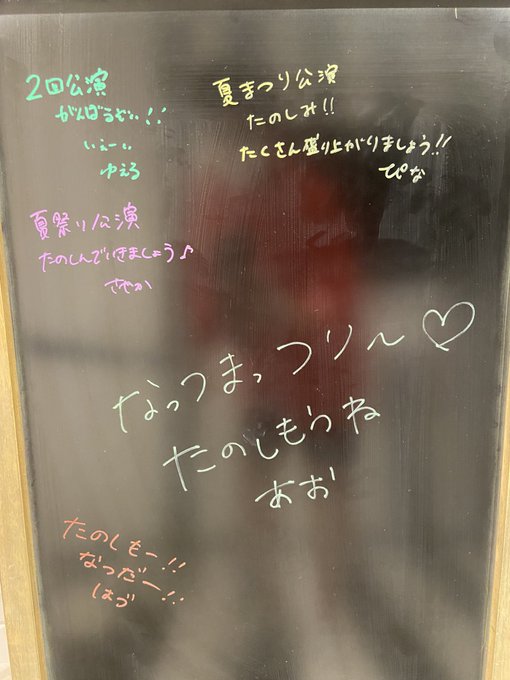 2回公演
がんばるぞぃ!!
いぇーぃ
ゆえる
夏まつり公演
たのしみ!!
たくさん盛り上がりましょう!!
ぴな
夏祭り公演
たのしんでいきましょう♪
さやか
なっつまっつり〜♡
たのしもうね
あお
たのしもー!!
なつだー!!
はづ